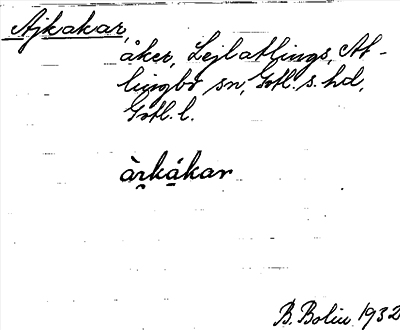 Ajkakar,
åker, Lejlatlings, At-
lingbo sn, Gotl. s. hd,
Gotl. l.
B. Bolin 1932